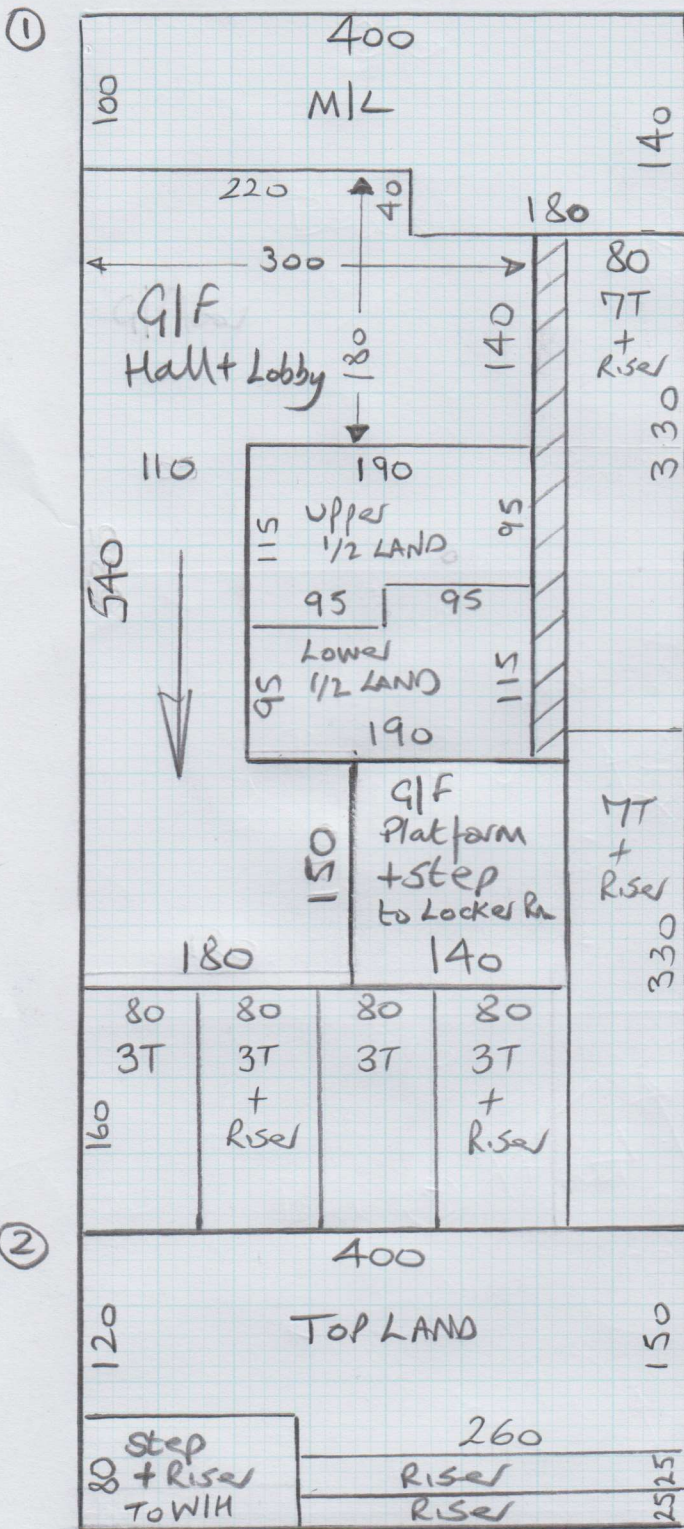 ①
400
100
M/L
140
220
40
180
300
80
7T
+
Riser
330
G/F
Hall + Lobby
180
140
110
190
540
115
Upper
1/2 LAND
95
95
95
Lower
1/2 LAND
95
115
190
G/F
Platform
+ Step
to Locker Rm
150
7T
+
Riser
330
180
140
80
3T
80
3T
+
Riser
80
3T
80
3T
+
Riser
160
②
400
120
TOP LAND
150
Step
+ Riser
TO W/H
80
260
Riser
25
Riser
25